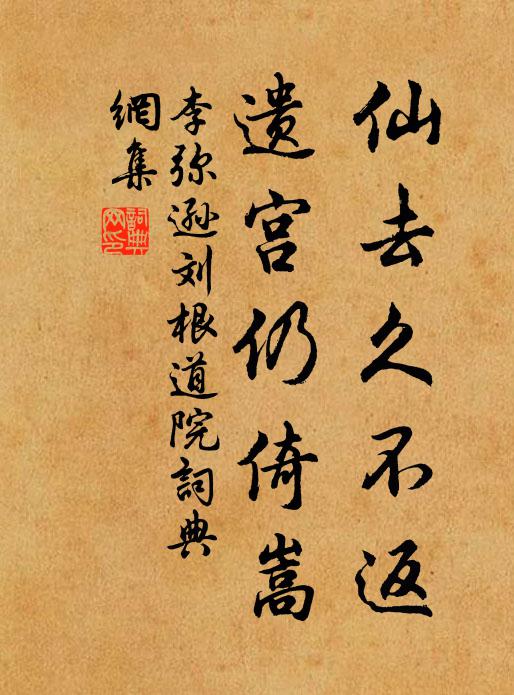 仙去久不返
遗宫仍倚嵩
李弥逊刘根道院詞典
網集
詞典網印